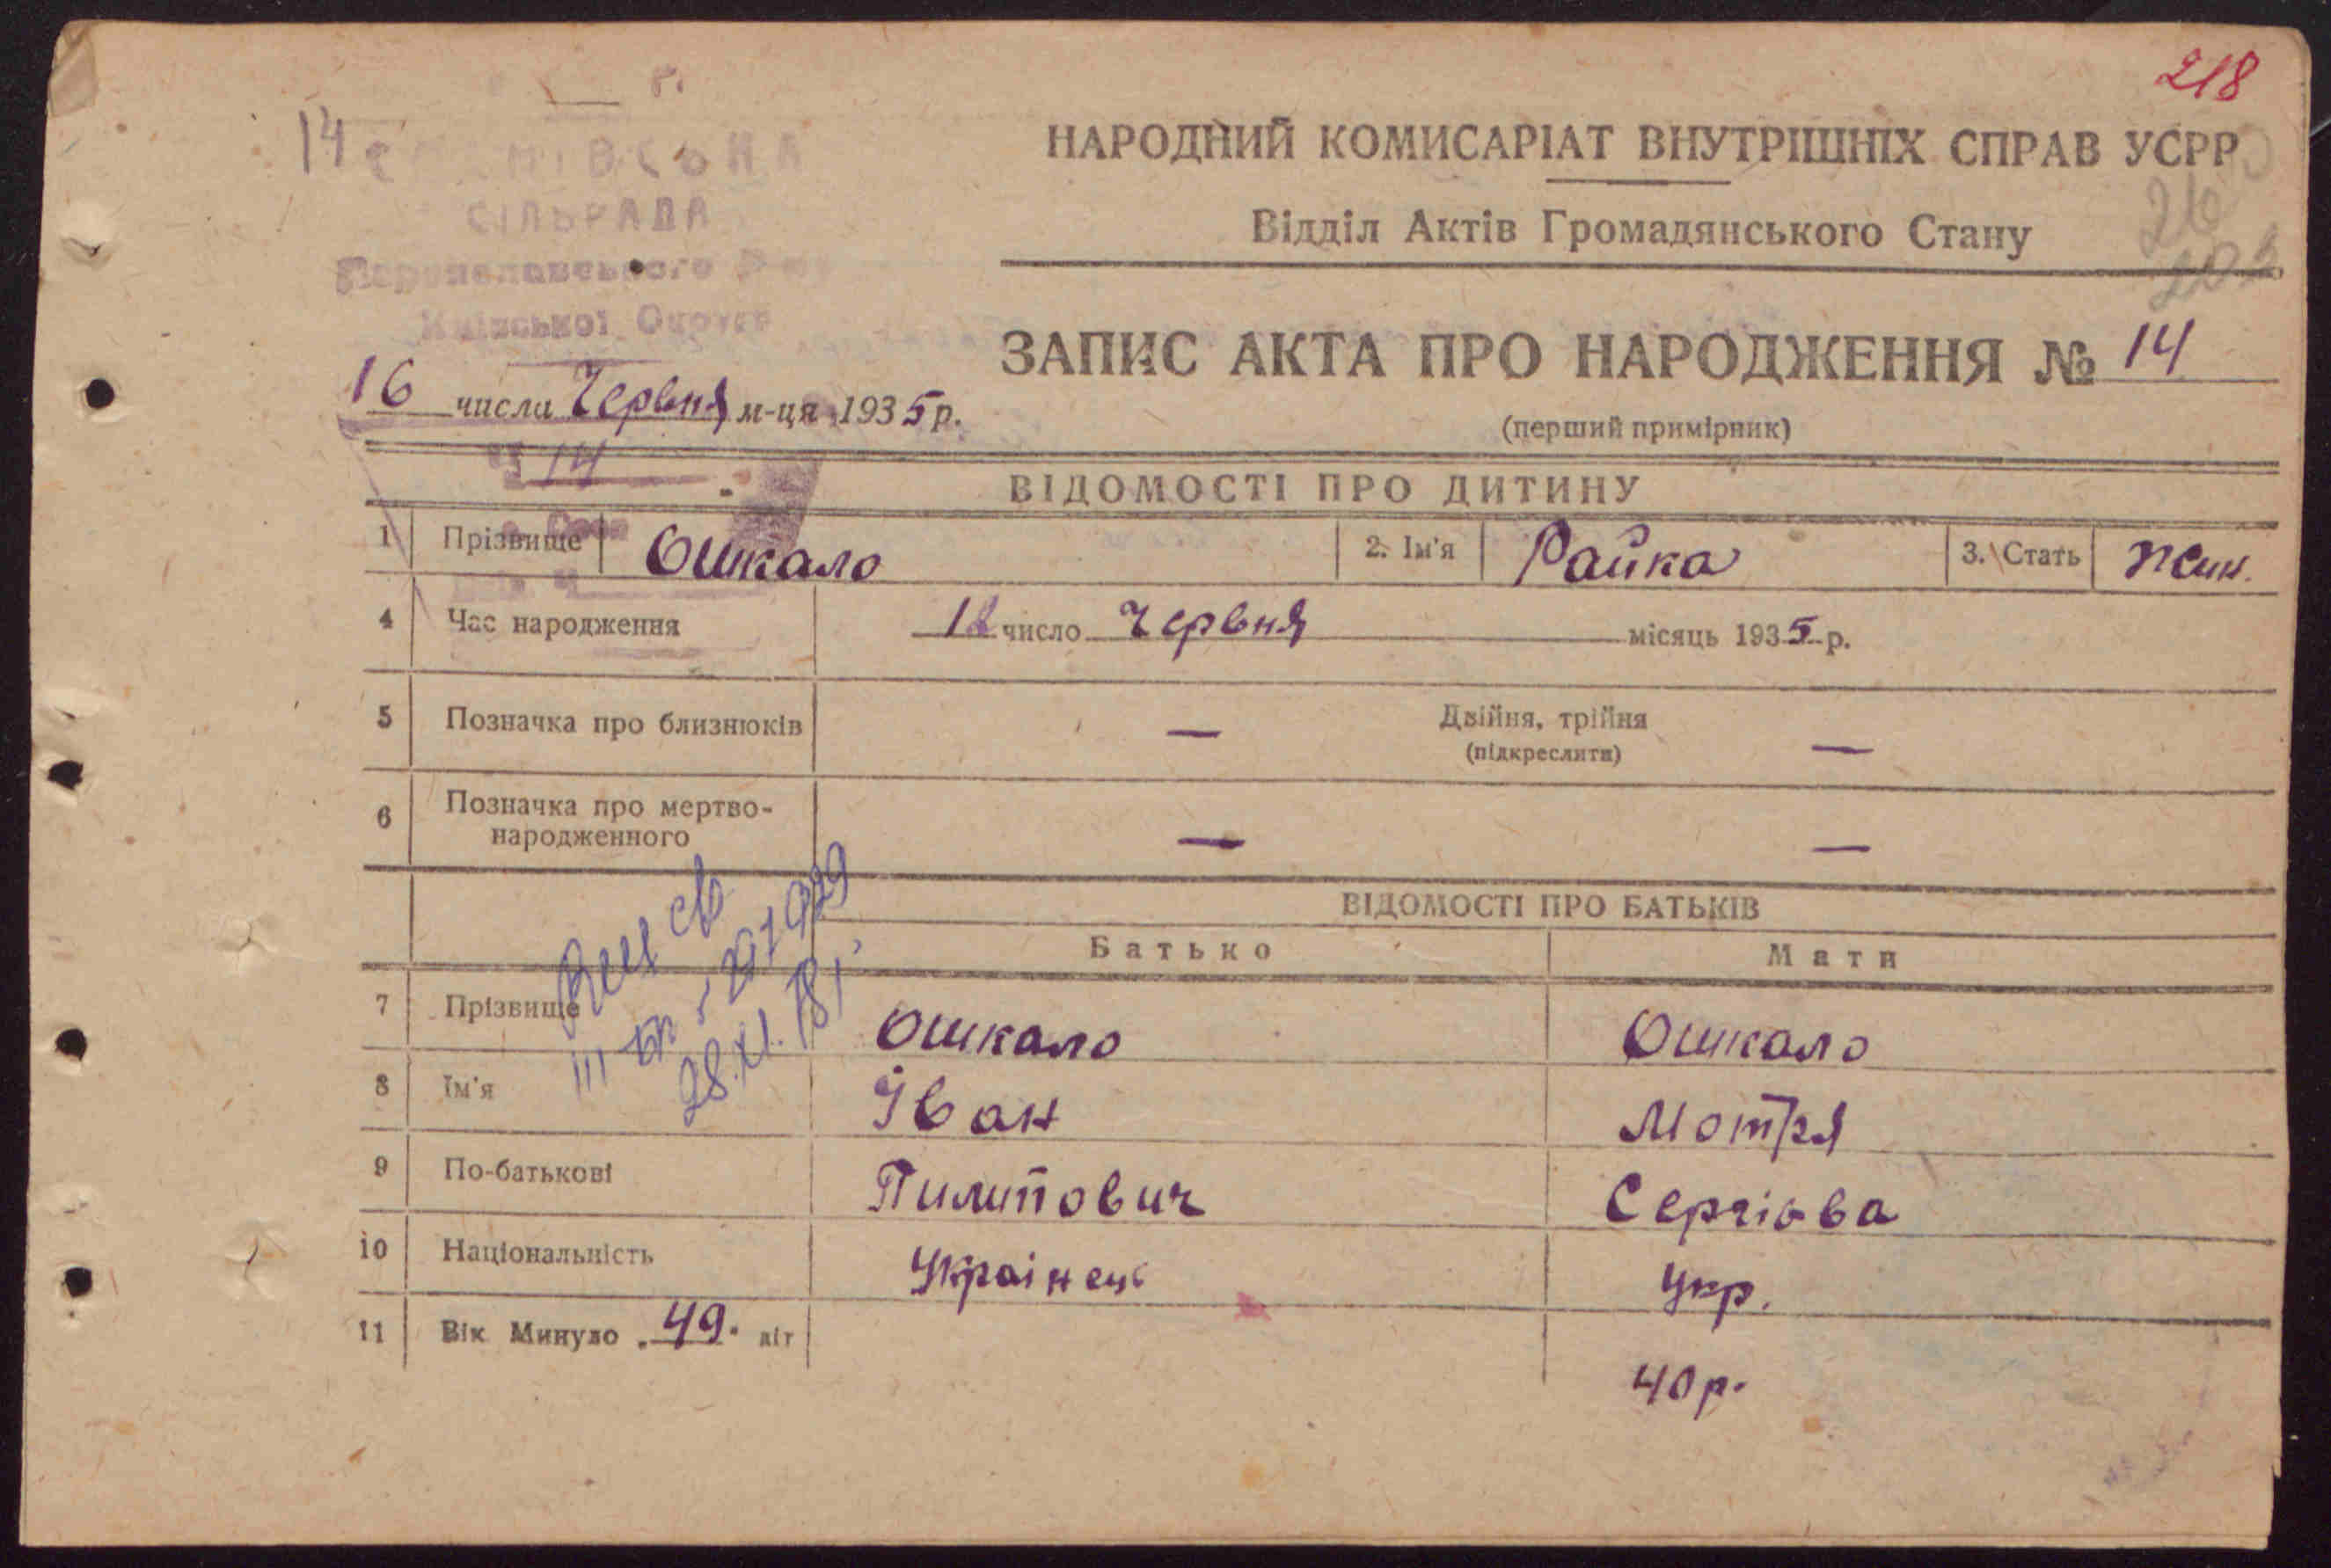 218
14
СІЛЬРАДА
НАРОДНИЙ КОМИСАРІАТ ВНУТРІШНІХ СПРАВ УСРР
Відділ Актів Громадянського Стану
Київської Округи
ЗАПИС АКТА ПРО НАРОДЖЕННЯ № 14
(перший примірник)
16 числа Червня м-ця 1935 р.
14
ВІДОМОСТІ ПРО ДИТИНУ
1 Прізвище Ошкало 2. Ім'я Райка 3. Стать жін.
4 Час народження число Червня місяць 1935 р.
5 Позначка про близнюків — Двійня, трійня —
(підкреслити)
6 Позначка про мертво-
народженного — —
ВІДОМОСТІ ПРО БАТЬКІВ
Батько Мати
7 Прізвище Ошкало Ошкало
8 Ім'я Іван Мотря
9 По-батькові Пилипович Сергіова
10 Національність Українець Укр.
11 Вік Минуло 49 літ
40 р.